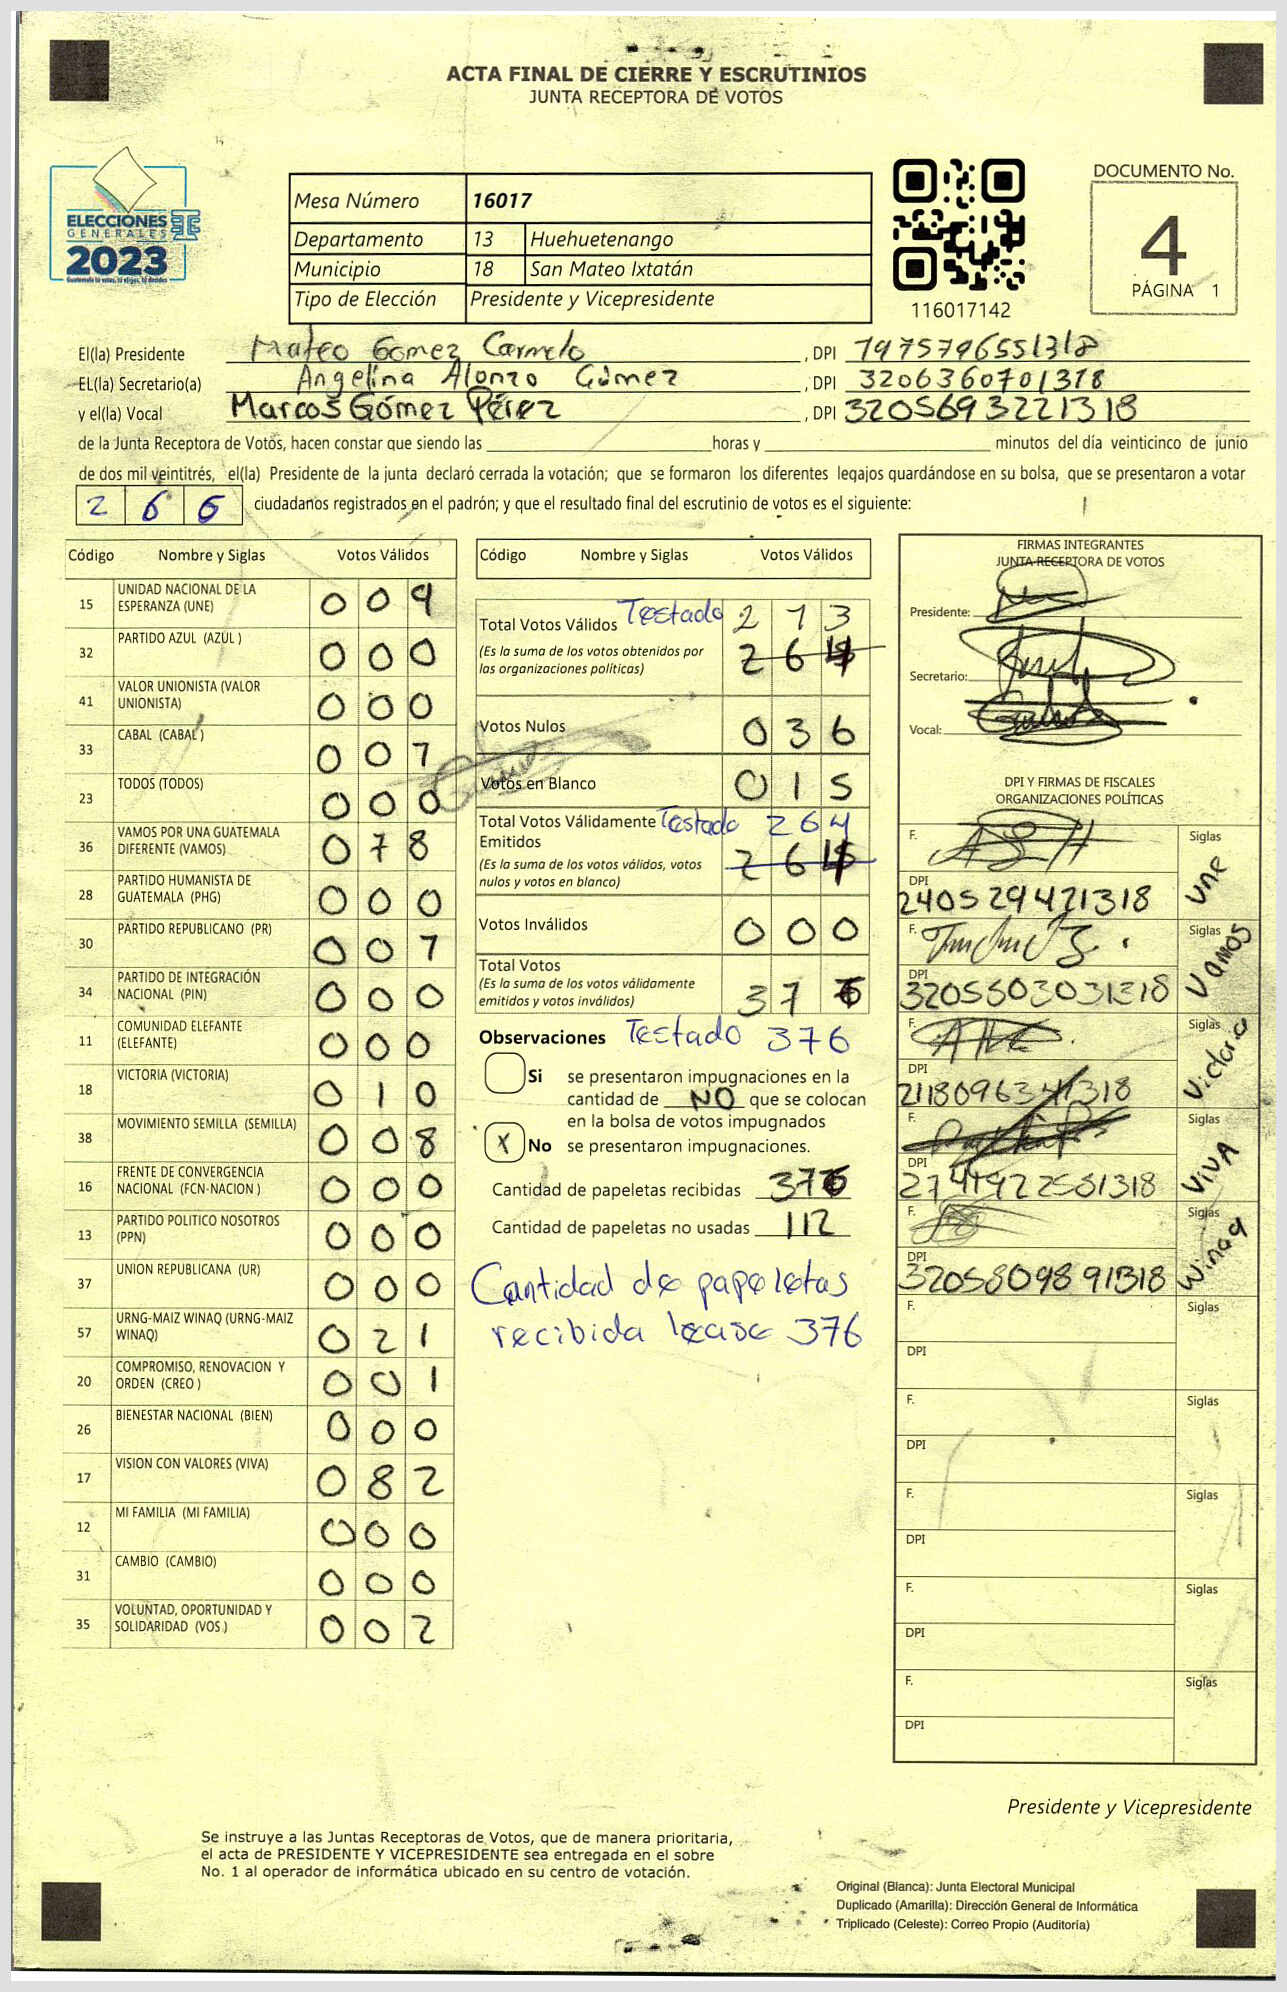 ACTA FINAL DE CIERRE Y ESCRUTINIOS
JUNTA RECEPTORA DE VOTOS
ELECCIONES
GENERALES
2023
Mesa Número 16017
Departamento 13 Huehuetenango
Municipio 18 San Mateo Ixtatán
Tipo de Elección Presidente y Vicepresidente
116017142
DOCUMENTO No.
4
PÁGINA 1
El(la) Presidente Mateo Gomez Carmelo , DPI 1975796551318
EL(la) Secretario(a) Angelina Alonzo Gómez , DPI 3206360701318
y el(la) Vocal Marcos Gómez Pérez , DPI 3205693221318
de la Junta Receptora de Votos, hacen constar que siendo las horas y minutos del día veinticinco de junio
de dos mil veintitrés, el(la) Presidente de la junta declaró cerrada la votación; que se formaron los diferentes legajos quardándose en su bolsa, que se presentaron a votar
2 6 6 ciudadanos registrados en el padrón; y que el resultado final del escrutinio de votos es el siguiente:
Código Nombre y Siglas Votos Válidos
15 UNIDAD NACIONAL DE LA ESPERANZA (UNE) 0 0 9
32 PARTIDO AZUL (AZUL ) 0 0 0
41 VALOR UNIONISTA (VALOR UNIONISTA) 0 0 0
33 CABAL (CABAL ) 0 0 7
23 TODOS (TODOS) 0 0 0
36 VAMOS POR UNA GUATEMALA DIFERENTE (VAMOS) 0 7 8
28 PARTIDO HUMANISTA DE GUATEMALA (PHG) 0 0 0
30 PARTIDO REPUBLICANO (PR) 0 0 7
34 PARTIDO DE INTEGRACIÓN NACIONAL (PIN) 0 0 0
11 COMUNIDAD ELEFANTE (ELEFANTE) 0 0 0
18 VICTORIA (VICTORIA) 0 1 0
38 MOVIMIENTO SEMILLA (SEMILLA) 0 0 8
16 FRENTE DE CONVERGENCIA NACIONAL (FCN-NACION ) 0 0 0
13 PARTIDO POLITICO NOSOTROS (PPN) 0 0 0
37 UNION REPUBLICANA (UR) 0 0 0
57 URNG-MAIZ WINAQ (URNG-MAIZ WINAQ) 0 2 1
20 COMPROMISO, RENOVACION Y ORDEN (CREO ) 0 0 1
26 BIENESTAR NACIONAL (BIEN) 0 0 0
17 VISION CON VALORES (VIVA) 0 8 2
12 MI FAMILIA (MI FAMILIA) 0 0 0
31 CAMBIO (CAMBIO) 0 0 0
35 VOLUNTAD, OPORTUNIDAD Y SOLIDARIDAD (VOS.) 0 0 2
Código Nombre y Siglas Votos Válidos
Total Votos Válidos Testado 2 1 3
(Es la suma de los votos obtenidos por 2 6 4
las organizaciones políticas)
Votos Nulos 0 3 6
Votos en Blanco 0 1 5
Total Votos Válidamente Testado 2 6 4
Emitidos 2 6 4
(Es la suma de los votos válidos, votos
nulos y votos en blanco)
Votos Inválidos 0 0 0
Total Votos
(Es la suma de los votos válidamente
emitidos y votos inválidos) 3 7 6
Observaciones Testado 376
Si se presentaron impugnaciones en la
cantidad de NO que se colocan
en la bolsa de votos impugnados
X No se presentaron impugnaciones.
Cantidad de papeletas recibidas 376
Cantidad de papeletas no usadas 112
Cantidad de papeletas
recibida lease 376
FIRMAS INTEGRANTES
JUNTA RECEPTORA DE VOTOS
Presidente:
Secretario:
Vocal:
DPI Y FIRMAS DE FISCALES
ORGANIZACIONES POLÍTICAS
F. Siglas UNE
DPI 2405294211318
F. Siglas VAMOS
DPI 3205603031318
F. Siglas Victoria
DPI
F. Siglas VIVA
DPI
F. Siglas Winaq
DPI 3205809891318
F. Siglas
DPI
F. Siglas
DPI
F. Siglas
DPI
F. Siglas
DPI
F. Siglas
DPI
Presidente y Vicepresidente
Se instruye a las Juntas Receptoras de Votos, que de manera prioritaria,
el acta de PRESIDENTE Y VICEPRESIDENTE sea entregada en el sobre
No. 1 al operador de informática ubicado en su centro de votación.
Original (Blanca): Junta Electoral Municipal
Duplicado (Amarilla): Dirección General de Informática
Triplicado (Celeste): Correo Propio (Auditoría)